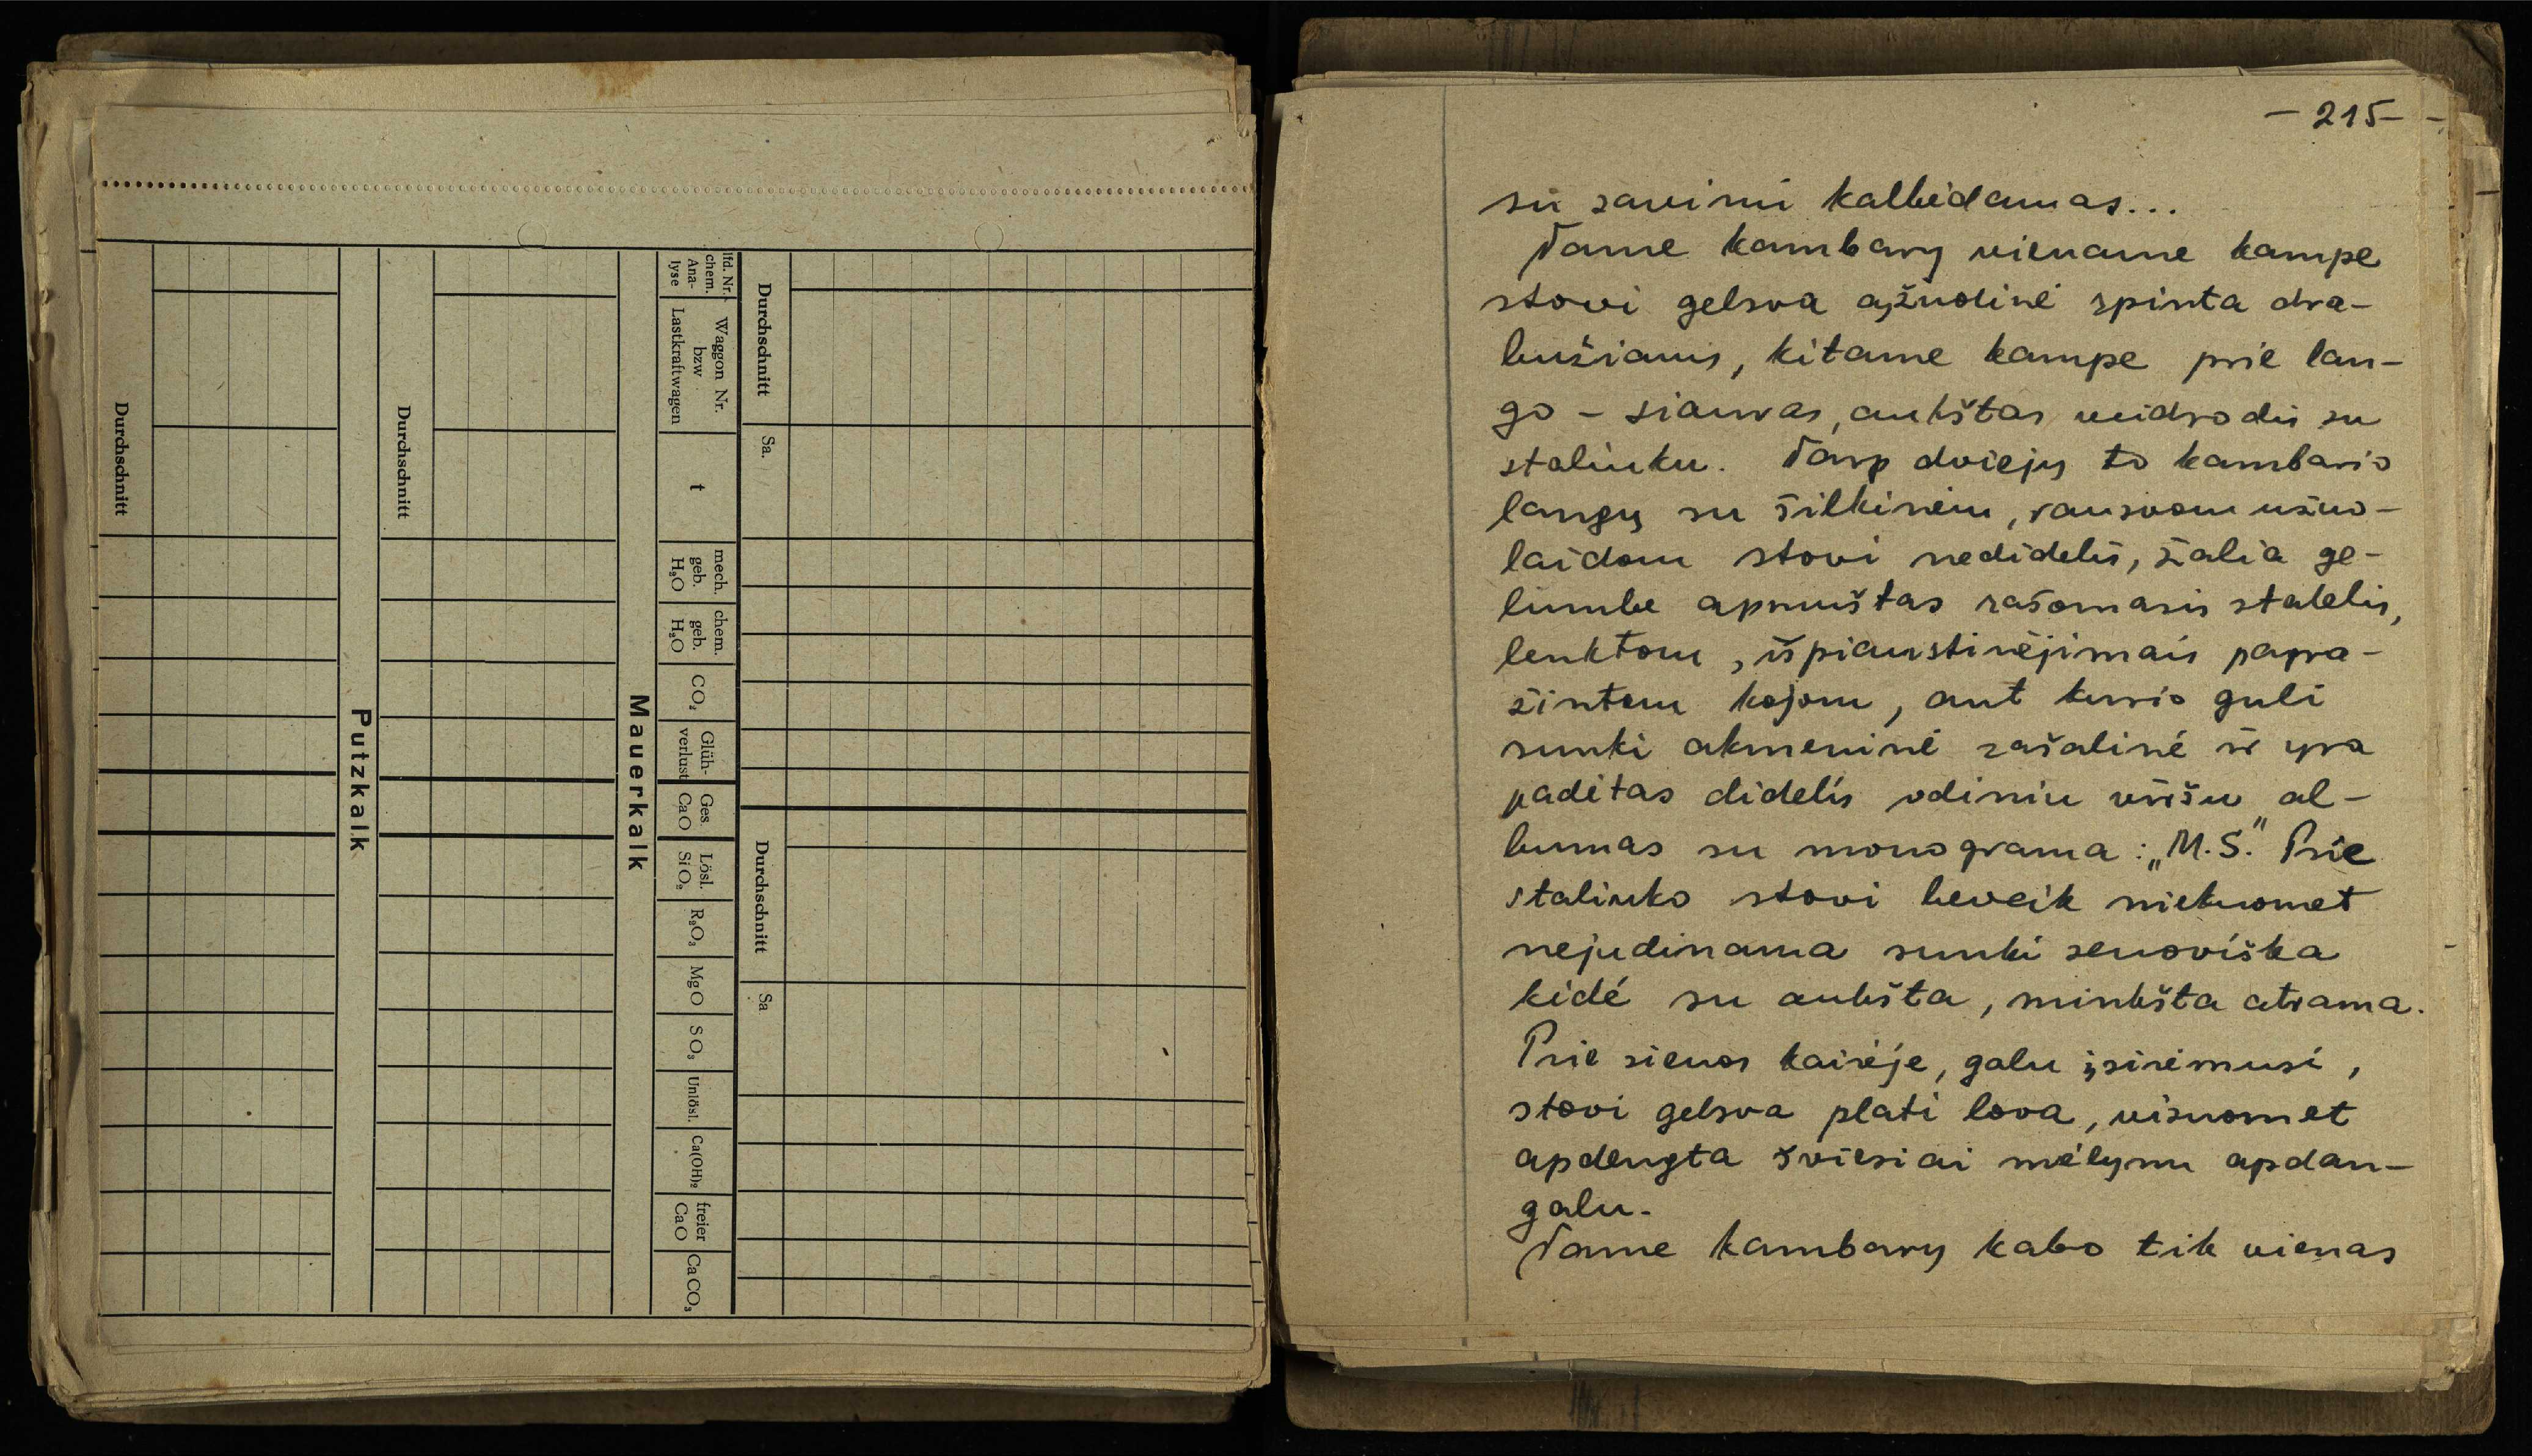 Durchschnitt
Sa.
Durchschnitt
Sa
lfd. Nr. chem. Ana-lyse
Waggon Nr. bzw Lastkraftwagen
t
mech. geb. H₂O
chem. geb. H₂O
CO₂
Glüh-verlust
Ges. CaO
Lösl. SiO₂
R₂O₃
MgO
SO₃
Unlösl.
Ca(OH)₂
freier CaO
CaCO₃
Mauerkalk
Durchschnitt
Putzkalk
Durchschnitt
– 215 –
su savimi kalbėdamas...
Tame kambary viename kampe
stovi gelsva ąžuolinė spinta dra-
bužiams, kitame kampe prie lan-
go – siauras, aukštas veidrodis su
staliuku. Tarp dviejų to kambario
langų su šilkinėm, rausvom užuo-
laidom stovi nedidelis, žalia ge-
lumbe apmuštas rašomasis stalelis,
lenktom, išpiaustinėjimais papra-
šintom kojom, ant kurio guli
sunki akmeninė rašalinė ir yra
padėtas didelis odiniu viršu al-
bumas su monograma: „M.S." Prie
staliuko stovi beveik niekuomet
nejudinama sunki senoviška
kėdė su aukšta, minkšta atrama.
Prie sienos kairėje, galu įsirėmusi,
stovi gelsva plati lova, visuomet
apdengta šviesiai mėlynu apdan-
galu.
Tame kambary kabo tik vienas